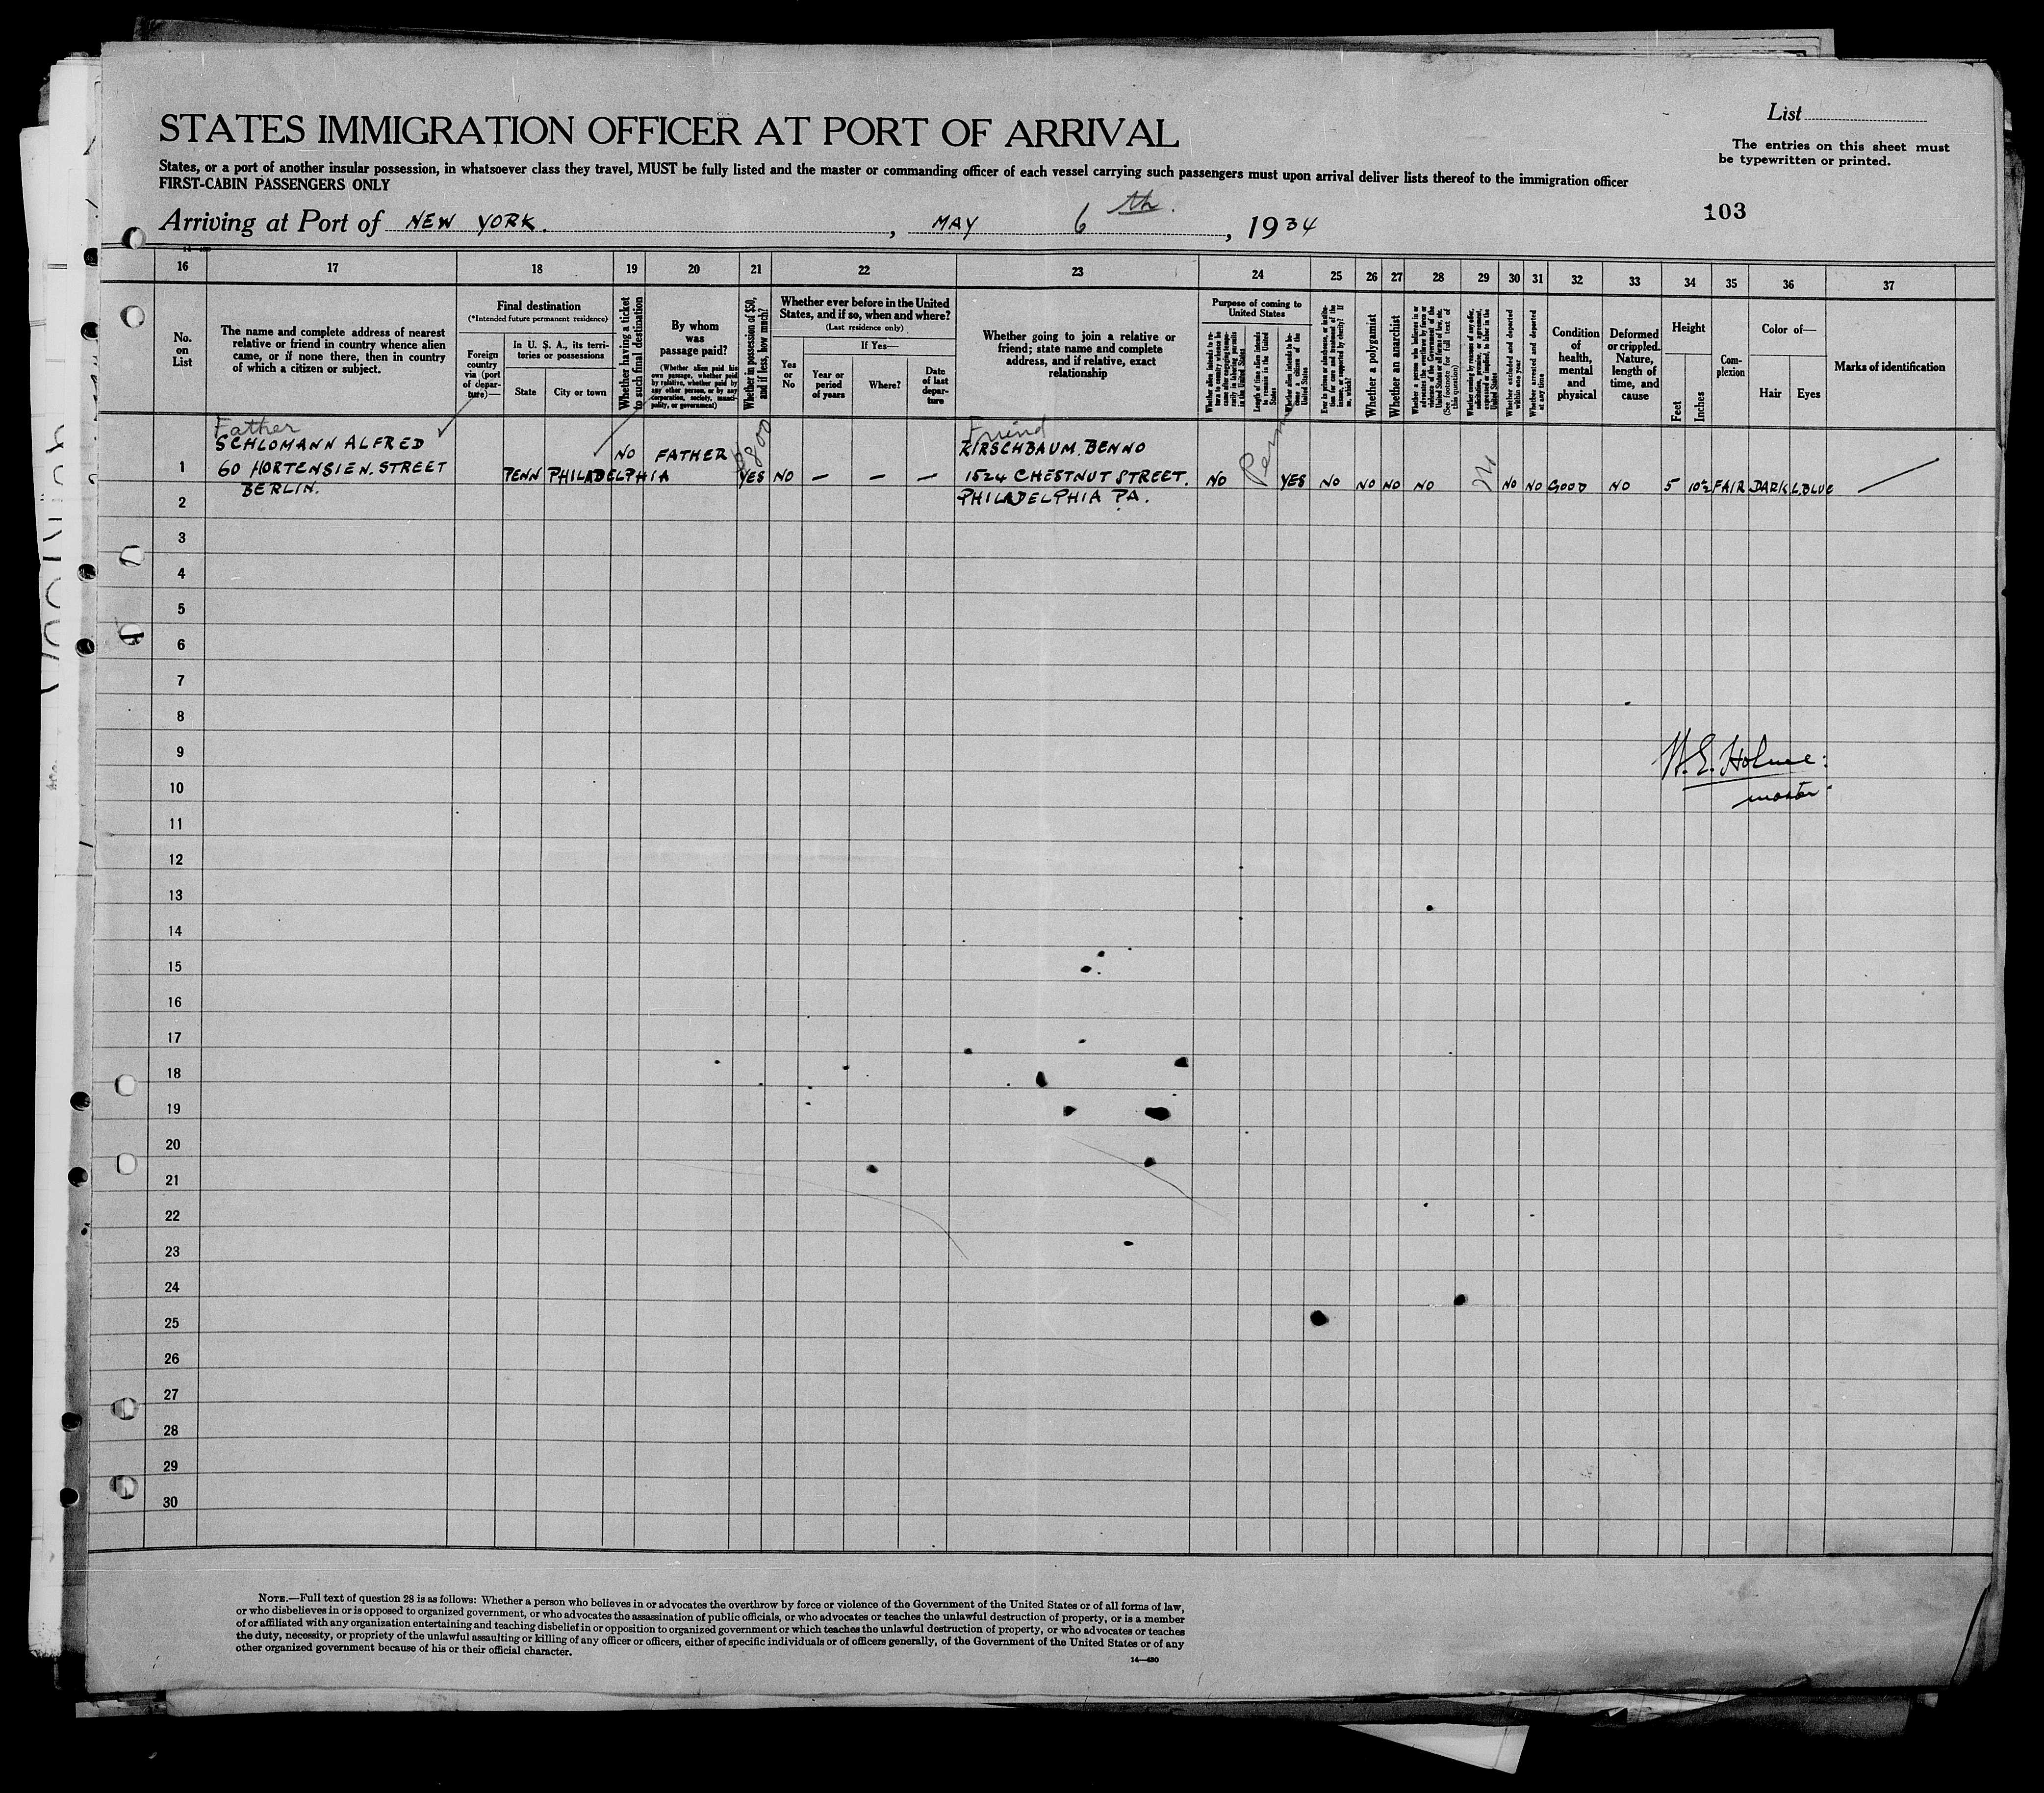 List
STATES IMMIGRATION OFFICER AT PORT OF ARRIVAL
The entries on this sheet must
be typewritten or printed.
States, or a port of another insular possession, in whatsoever class they travel, MUST be fully listed and the master or commanding officer of each vessel carrying such passengers must upon arrival deliver lists thereof to the immigration officer
FIRST-CABIN PASSENGERS ONLY
103
Arriving at Port of NEW YORK. , MAY 6 th. , 1934
16 17 18 19 20 21 22 23 24 25 26 27 28 29 30 31 32 33 34 35 36 37
No.
on
List
The name and complete address of nearest
relative or friend in country whence alien
came, or if none there, then in country
of which a citizen or subject.
Final destination
(*Intended future permanent residence)
Foreign
country
via (port
of depar-
ture)—
In U. S. A., its terri-
tories or possessions
State City or town
Whether having a ticket
to such final destination
By whom
was
passage paid?
(Whether alien paid his
own passage, whether paid
by relative, whether paid by
any other person, or by any
corporation, society, munici-
pality, or government)
Whether in possession of $50,
and if less, how much?
Whether ever before in the United
States, and if so, when and where?
(Last residence only)
Yes
or
No
If Yes—
Year or
period
of years
Where?
Date
of last
depar-
ture
Whether going to join a relative or
friend; state name and complete
address, and if relative, exact
relationship
Purpose of coming to
United States
Whether alien intends to re-
turn to country whence he
came after engaging tempo-
rarily in laboring pursuits
in the United States
Length of time alien intends
to remain in the United
States
Whether alien intends to be-
come a citizen of the
United States
Ever in prison or almshouse, or institu-
tion for care and treatment of the
insane, or supported by charity? If
so, which?
Whether a polygamist
Whether an anarchist
Whether a person who believes in or
advocates the overthrow by force or
violence of the Government of the
United States or all forms of law, etc.
(See footnote for full text of
this question)
Whether coming by reason of any offer,
solicitation, promise, or agreement,
expressed or implied, to labor in the
United States
Whether excluded and deported
within one year
Whether arrested and deported
at any time
Condition
of
health,
mental
and
physical
Deformed
or crippled.
Nature,
length of
time, and
cause
Height
Feet
Inches
Com-
plexion
Color of—
Hair Eyes
Marks of identification
Father
SCHLOMANN ALFRED
60 HORTENSIEN. STREET
BERLIN.
1 PENN PHILADELPHIA NO FATHER YES $800 NO — — —
Friend
KIRSCHBAUM. BENNO
1524 CHESTNUT STREET.
PHILADELPHIA PA.
NO Perm YES NO NO NO NO NO NO NO GOOD NO 5 10½ FAIR DARK L.BLUE
2
3
4
5
6
7
8
9
10
W. E. Holme:
master
11
12
13
14
15
16
17
18
19
20
21
22
23
24
25
26
27
28
29
30
NOTE.—Full text of question 28 is as follows: Whether a person who believes in or advocates the overthrow by force or violence of the Government of the United States or of all forms of law,
or who disbelieves in or is opposed to organized government, or who advocates the assassination of public officials, or who advocates or teaches the unlawful destruction of property, or is a member
of or affiliated with any organization entertaining and teaching disbelief in or opposition to organized government or which teaches the unlawful destruction of property, or who advocates or teaches
the duty, necessity, or propriety of the unlawful assaulting or killing of any officer or officers, either of specific individuals or of officers generally, of the Government of the United States or of any
other organized government because of his or their official character.
14—430